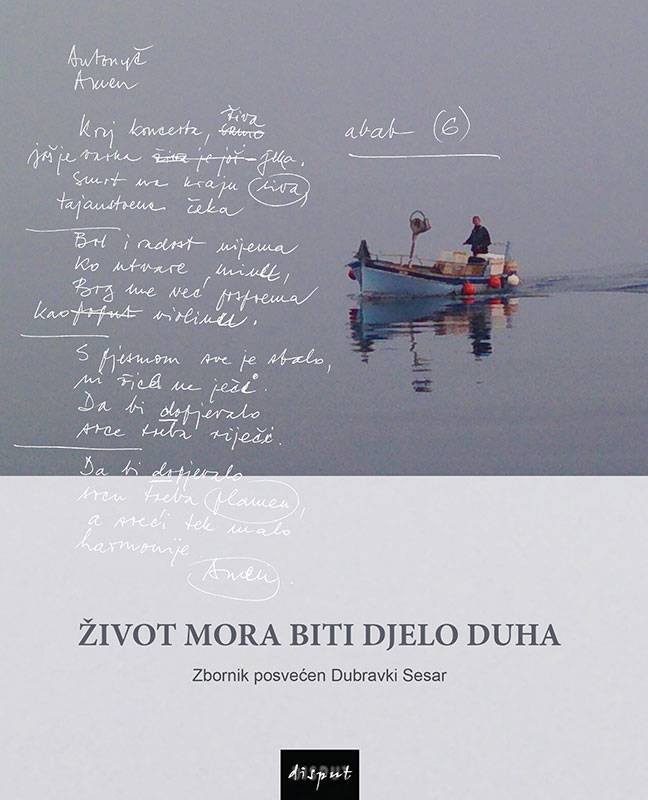 Antonyč
Amen
Kraj koncerta, živa
još je varka je još jeka.
Smrt na kraju siva,
tajanstvena čeka
abab (6)
Bol i radost nijema
ko utvare, minut,
Bog me već priprema
kao violinu.
S pjesmom sve je stalo,
ni ne ječi.
Da bi dopjevalo
srce treba riječi.
Da bi dopjevalo
srcu treba plamen,
a sreći tek malo
harmonije
Amen.
ŽIVOT MORA BITI DJELO DUHA
Zbornik posvećen Dubravki Sesar
disput